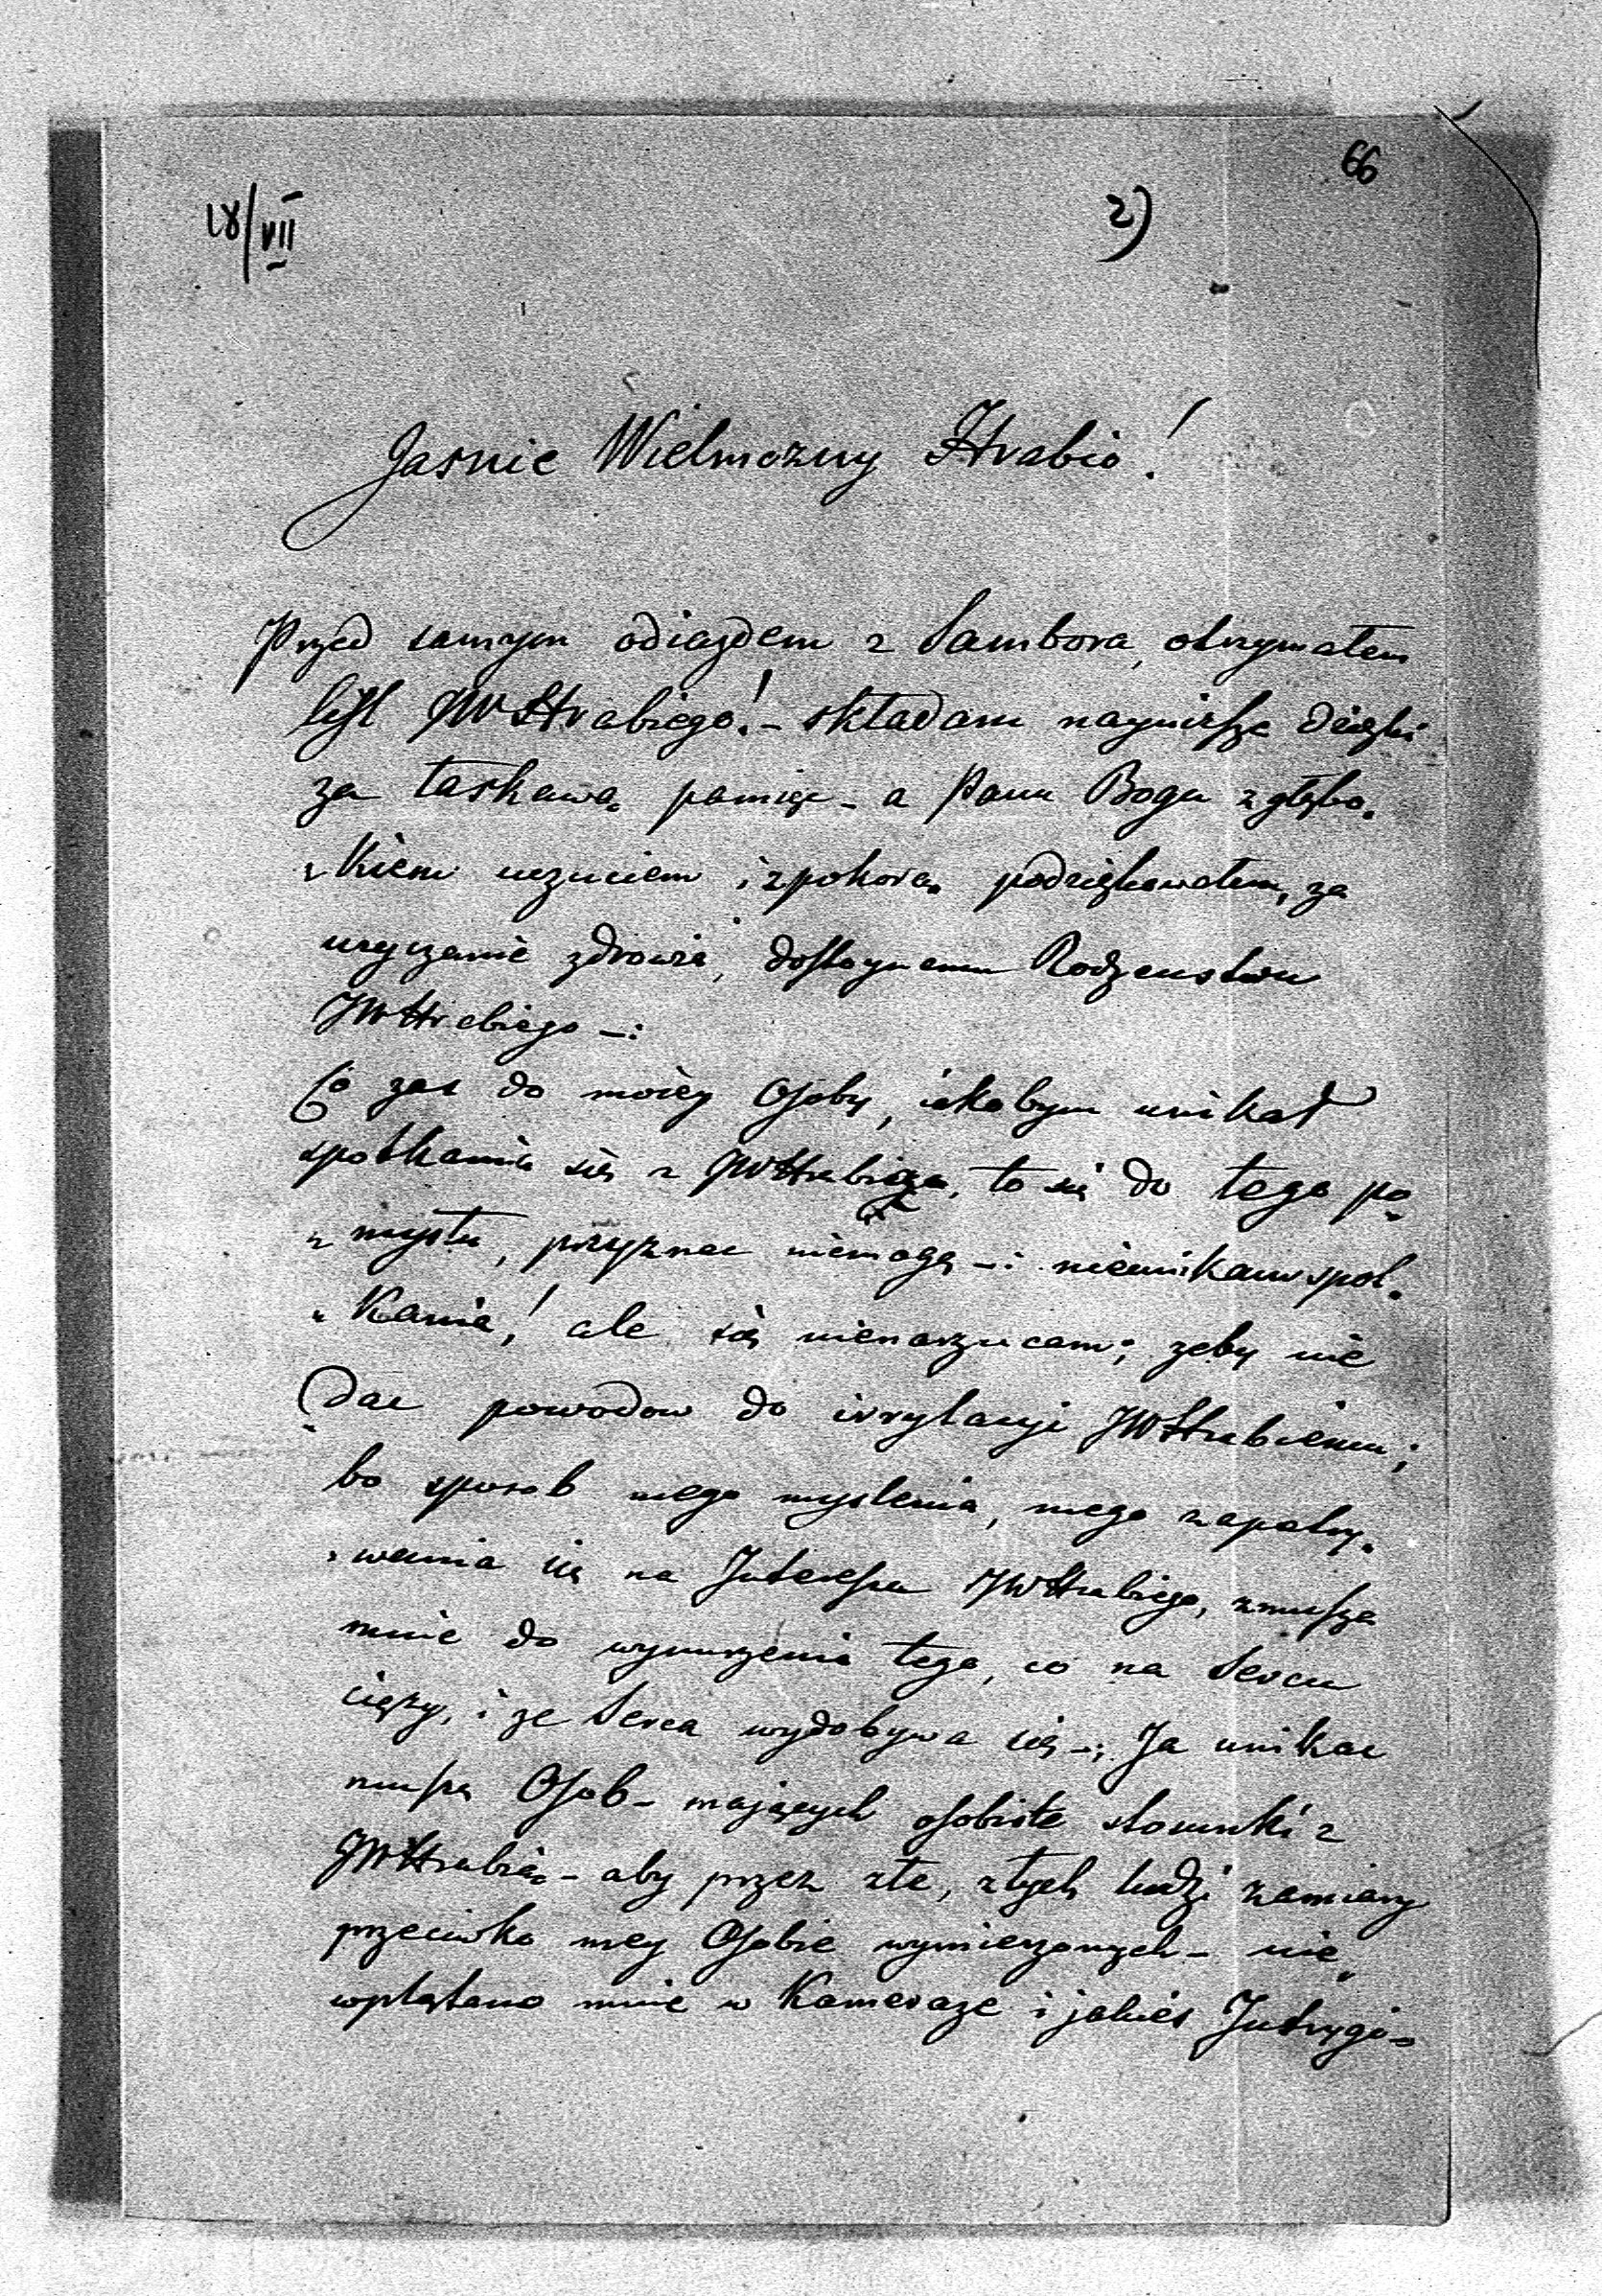 66
18/VII
2)
Jasnie Wielmozny Hrabio!
Przed samym odiazdem z Sambora, otrzymałem
list JWHrabiego! - składam nayniższe dzięki
za łaskawą pamięc - a Panu Bogu z głębo-
kiem uczuciem i z pokorą podziękowałem, za
uzyczenie zdrowia, dostoynemu Rodzenstwu
JWHrabiego -:
Co zas do moiey Osoby, iakobym unikał
spotkania się z JWHrabią, to się do tego po-
mysłu, przyznac niemogę -: nieunikam spot-
kania! ale się nienarzucam; zeby nie
dac powodow do irrytacyi JWHrabiemu;
bo sposob mego myslenia, mego zapatry-
wania się na Interessa JWHrabiego, zmusza
mnie do wynurzenia tego, co na Sercu
cięzy, i ze Serca wydobywa się -; Ja unikac
muszę Osob - mających osobiste stosunki z
JWHrabią - aby przez złe, złych ludzi zamiary
przeciwko mey Osobie wymierzonych - nie
wplątano mnie w Kameraze i jakies Intrygi -